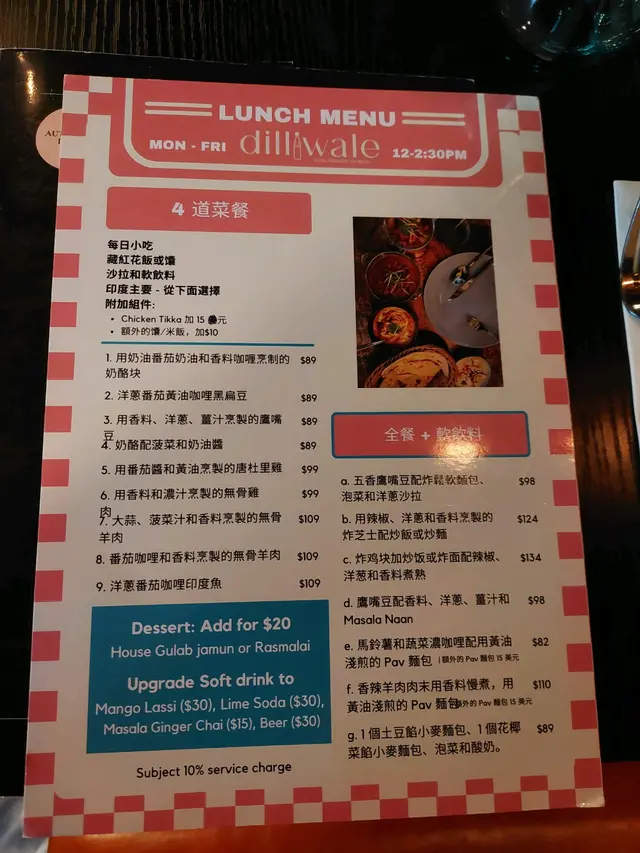 LUNCH MENU
MON - FRI
dilliwale
12-2:30PM
4 道菜餐
每日小吃
藏紅花飯或馕
沙拉和軟飲料
印度主要 - 從下面選擇
附加組件:
• Chicken Tikka 加 15 元
• 額外的馕/米飯，加$10
1. 用奶油番茄奶油和香料咖喱烹制的奶酪块 $89
2. 洋蔥番茄黃油咖哩黑扁豆 $89
3. 用香料、洋蔥、薑汁烹製的鷹嘴豆 $89
4. 奶酪配菠菜和奶油醬 $89
5. 用番茄醬和黃油烹製的唐杜里雞 $99
6. 用香料和濃汁烹製的無骨雞肉 $99
7. 大蒜、菠菜汁和香料烹製的無骨羊肉 $109
8. 番茄咖哩和香料烹製的無骨羊肉 $109
9. 洋蔥番茄咖哩印度魚 $109
Dessert: Add for $20
House Gulab jamun or Rasmalai
Upgrade Soft drink to
Mango Lassi ($30), Lime Soda ($30),
Masala Ginger Chai ($15), Beer ($30)
Subject 10% service charge
全餐 + 軟飲料
a. 五香鷹嘴豆配炸鬆軟麵包、 $98
泡菜和洋蔥沙拉
b. 用辣椒、洋蔥和香料烹製的 $124
炸芝士配炒飯或炒麵
c. 炸鸡块加炒饭或炸面配辣椒、 $134
洋葱和香料煮熟
d. 鷹嘴豆配香料、洋蔥、薑汁和 $98
Masala Naan
e. 馬鈴薯和蔬菜濃咖哩配用黃油 $82
淺煎的 Pav 麵包 |額外的 Pav 麵包 15 美元
f. 香辣羊肉肉末用香料慢煮，用 $110
黃油淺煎的 Pav 麵包 額外的 Pav 麵包 15 美元
g. 1 個土豆餡小麥麵包、1 個花椰 $89
菜餡小麥麵包、泡菜和酸奶。